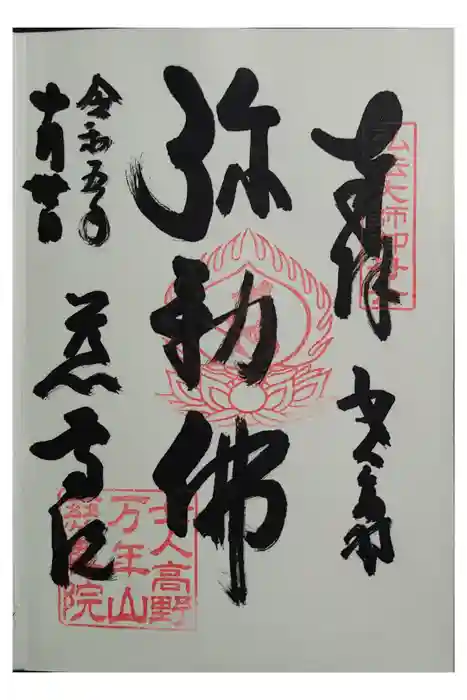 奉拝
弘法大師
女人高野
弥勒佛
令和五年
十月廿日
慈尊院
女人高野
万年山
慈尊院